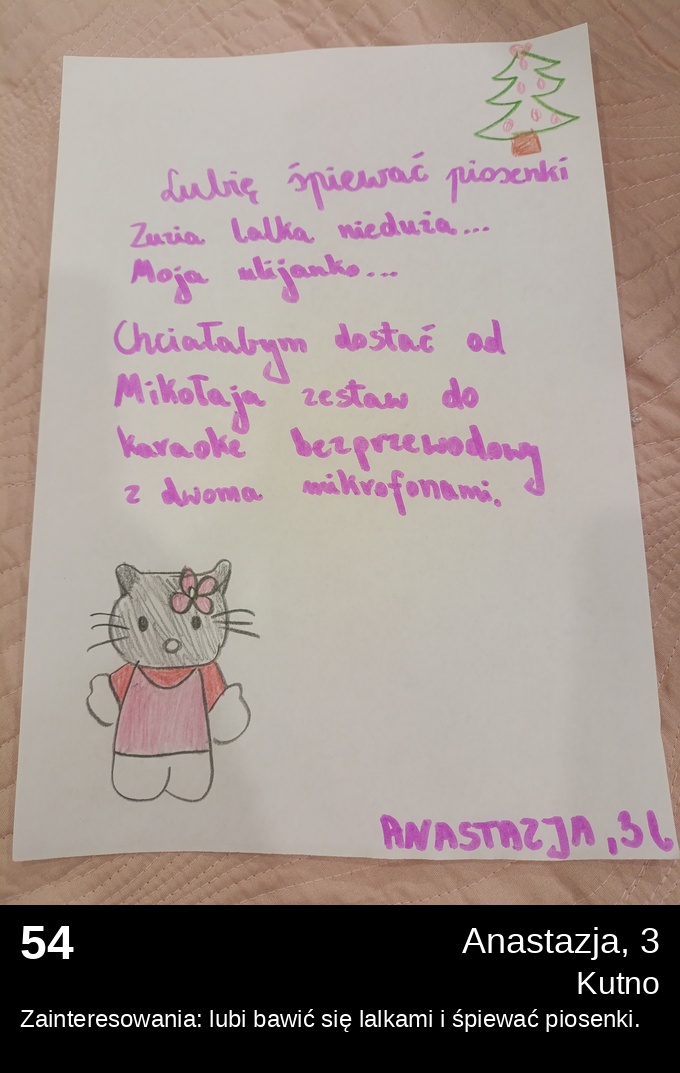 Lubię śpiewać piosenki
Zuzia lalka nieduża...
Moja ulijanko...
Chciałabym dostać od
Mikołaja zestaw do
karaoke bezprzewodowy
z dwoma mikrofonami.
ANASTAZJA, 3 l.
54
Anastazja, 3
Kutno
Zainteresowania: lubi bawić się lalkami i śpiewać piosenki.